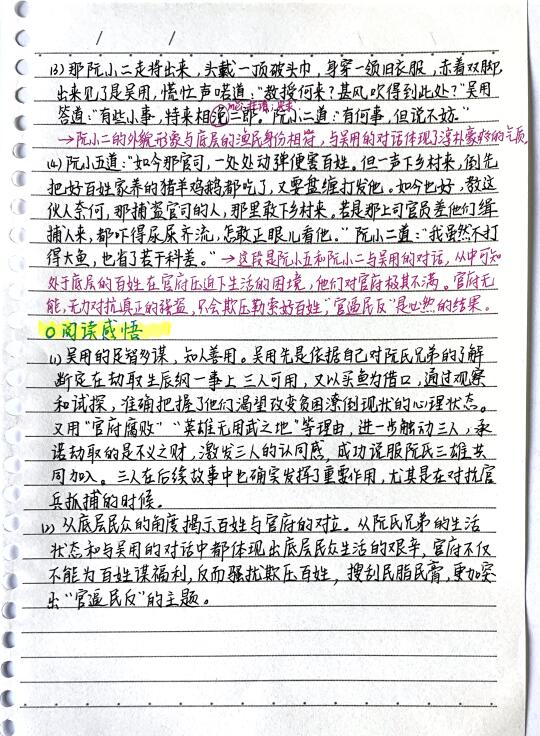 (3) 那阮小二走将出来，头戴一顶破头巾，身穿一领旧衣服，赤着双脚，
出来见了是吴用，慌忙声喏道：“教授何来？甚风吹得到此处？”吴用
答道：“有些小事，特来相浼二郎。”阮小二道：“有何事，但说不妨。”
→阮小二的外貌形象与底层的渔民身份相符，与吴用的对话体现了淳朴豪爽的气质
(4) 阮小五道：“如今那官司，一处处动弹便害百姓。但一声下乡村来，倒先
把好百姓家养的猪羊鸡鹅都吃了，又要盘缠打发他。如今也好，教这
伙人奈何，那捕盗官司的人，那里敢下乡村来。若是那上司官员差他们缉
捕人来，都吓得尿屎齐流，怎敢正眼儿看他。”阮小二道：“我虽然不打
得大鱼，也省了若干科差。”→这段是阮小五和阮小二与吴用的对话，从中可知
处于底层的百姓在官府压迫下生活的困境，他们对官府极其不满。官府无
能，无力对抗真正的强盗，只会欺压勒索好百姓，“官逼民反”是必然的结果。
○阅读感悟
(1) 吴用的足智多谋，知人善用。吴用先是依据自己对阮氏兄弟的了解
断定在劫取生辰纲一事上三人可用，又以买鱼为借口，通过观察
和试探，准确把握了他们渴望改变贫困潦倒现状的心理状态。
又用“官府腐败”“英雄无用武之地”等理由，进一步触动三人，承
诺劫取的是不义之财，激发三人的认同感，成功说服阮氏三雄共
同加入。三人在后续故事中也确实发挥了重要作用，尤其是在对抗官
兵抓捕的时候。
(2) 从底层民众的角度揭示百姓与官府的对立。从阮氏兄弟的生活
状态和与吴用的对话中都体现出底层民众生活的艰辛，官府不仅
不能为百姓谋福利，反而骚扰欺压百姓，搜刮民脂民膏，更加突
出“官逼民反”的主题。